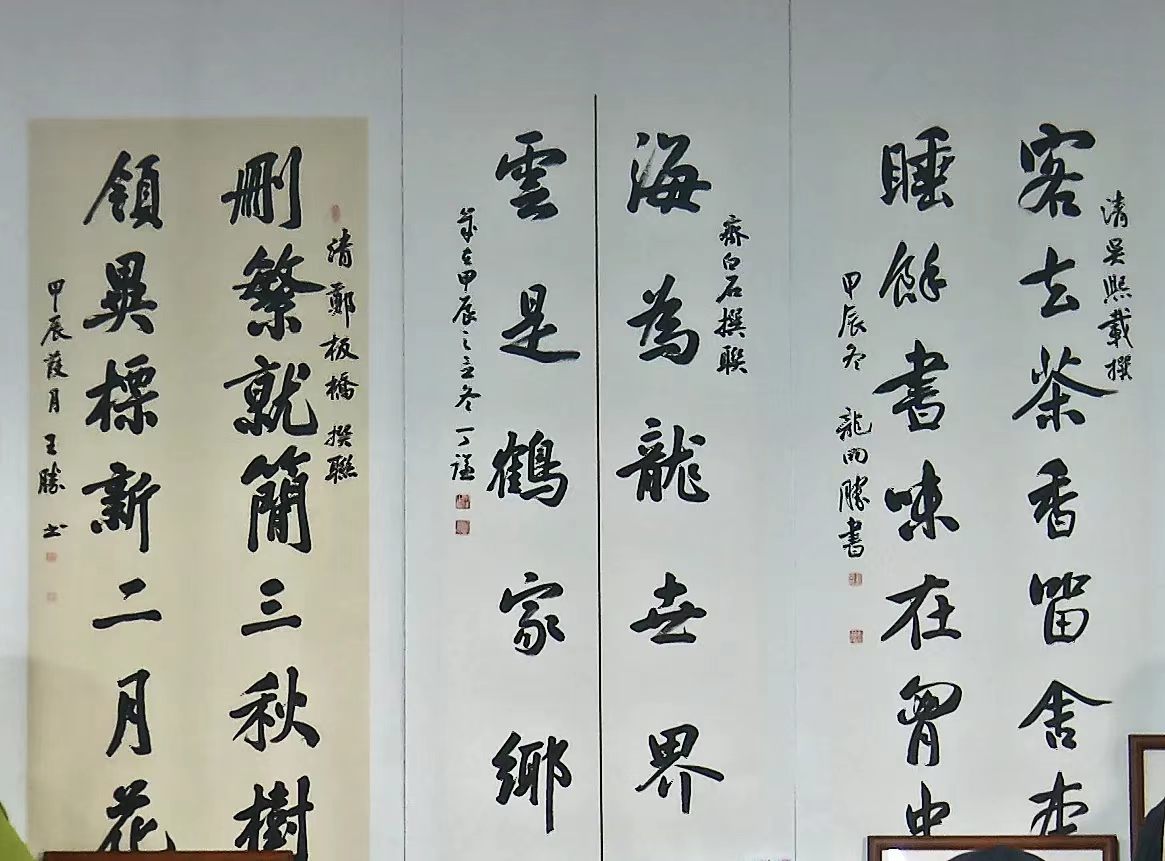 清吳熙載撰
客去茶香留舍本
睡餘書味在胷中
甲辰冬 龍 勝書
齊白石撰聯
海為龍世界
雲是鶴家鄉
歲在甲辰之立冬丁謙
清鄭板橋撰聯
刪繁就簡三秋樹
領異標新二月花
甲辰葭月王勝书